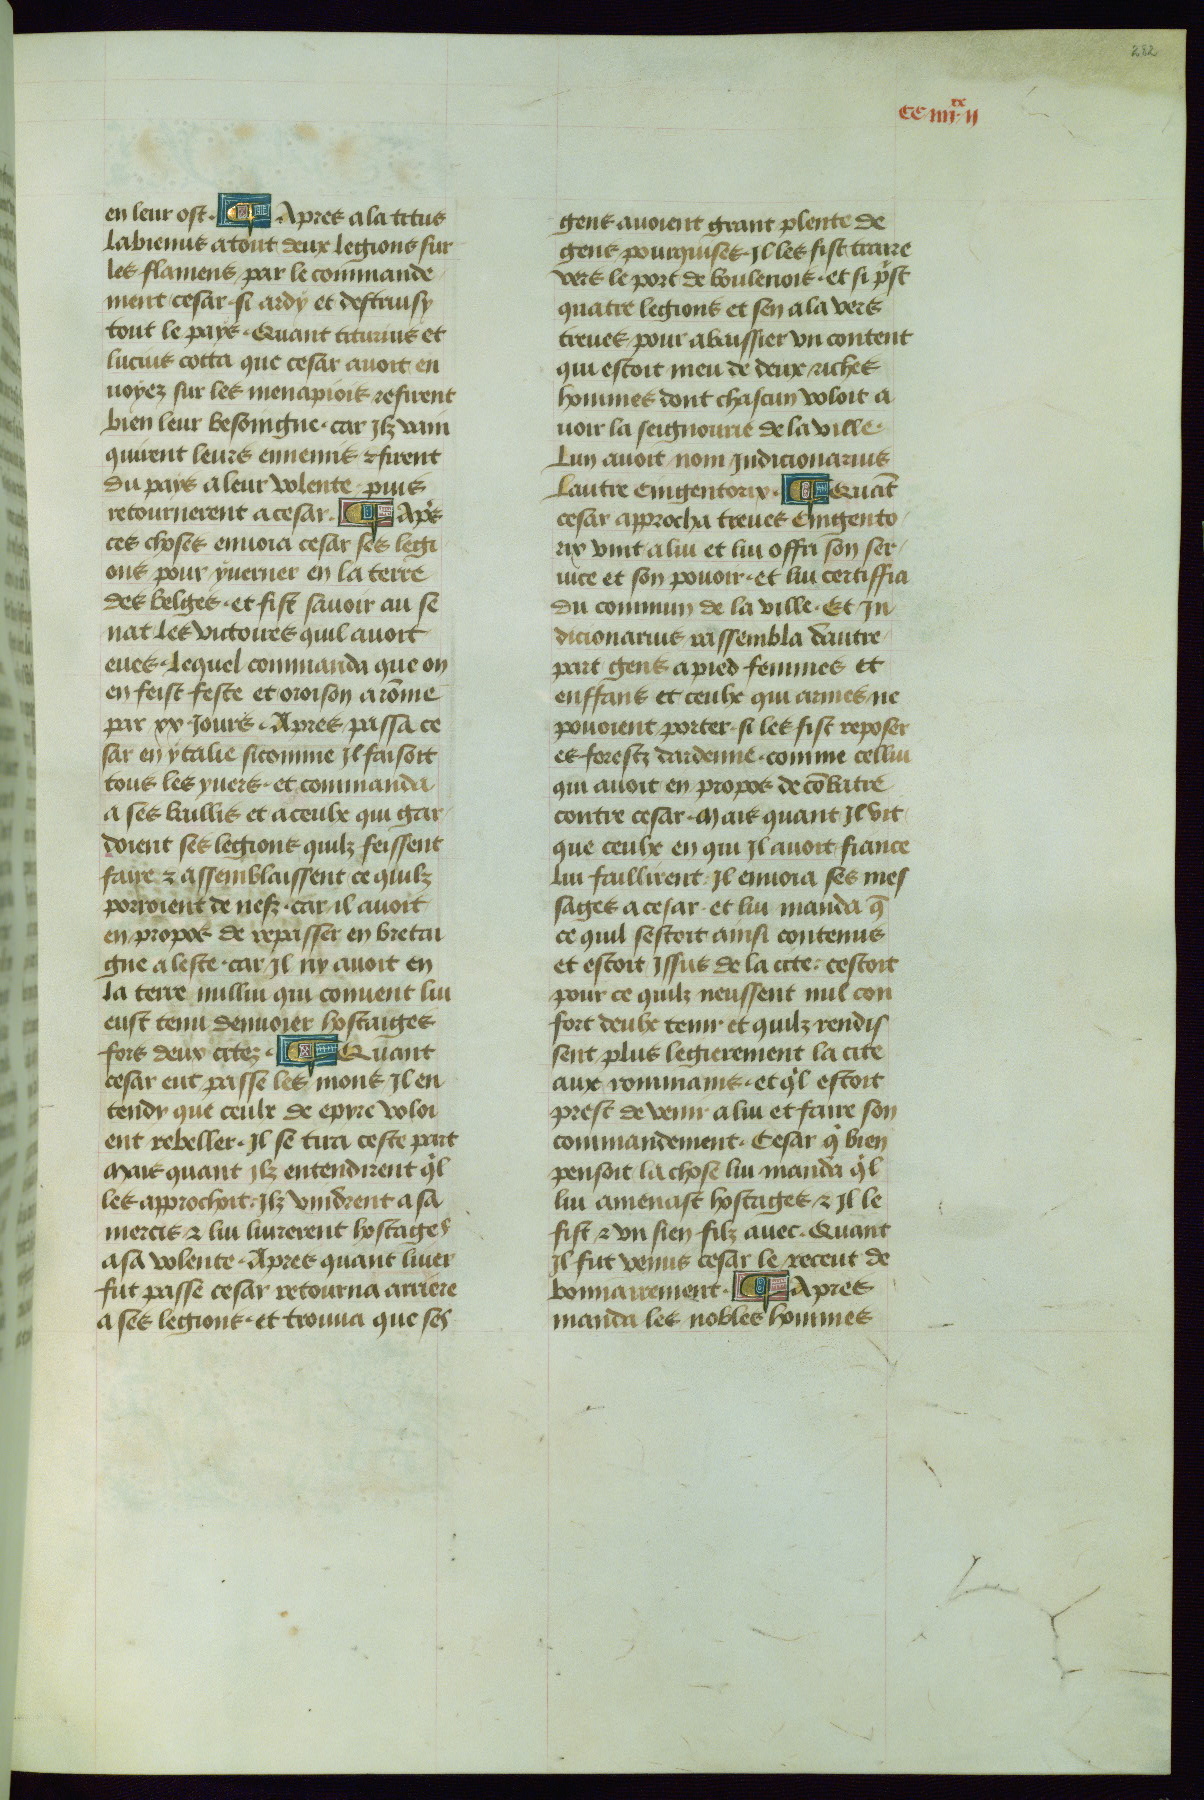 282
CC·IIII·XX·II
en leur ost· Apres ala titus
Labienus atout deux legions sur
les flamens par le commande
ment cesar· si ardy et destruisy
tout le pays· Quant titurius et
lucius cotta que cesar auoit en
uoyez sur les menapiois refirent
bien leur besoingne· car jlz vain
quirent leurs ennemis ⁊ firent
du pays a leur volente· puis
retournerent a cesar· Ap̃s
ces choses enuoia cesar ses legi
ons pour yuerner en la terre
des belges· et fist sauoir au se
nat les victoires quil auoit
eues· Lequel commanda que on
en feist feste et oroison a rōme
par xx· Jours· Apres passa ce
sar en ytalie sicomme Il faisoit
tous les yuers· et commanda
a ses baillis et a ceulx qui gar
doient ses legions quilz feissent
faire ⁊ assemblaissent ce quilz
porroient de nefz· car il auoit
en propos de repasser en bretai
gne a leste· car Il ny auoit en
la terre nulluy qui conuent lui
eust tenu denuoier hostaiges
fors deux citez· Quant
cesar eut passe les mons Il en
tendy que ceulx de epyre voloi
ent rebeller· Il se tira ceste part
Mais quant Ilz entendirent q̃l
les approchoit: Ilz vindrent a sa
mercis ⁊ lui liurerent hostages
a sa volente· Apres quant liuer
fut passe cesar retourna arriere
a ses legions· et trouua que ses
gens auoient grant plente de
gens pourquises· Il les fist traire
vers le port de boulenois· et si p̃st
quatre legions et sen ala vers
treues pour abaissier vn content
qui estoit meu de deux riches
hommes dont chascun voloit a
uoir la seignourie de la ville·
Lun auoit nom Indicionarius
Lautre Cingentorix· Quāt
cesar approcha treues Cingento
rix vint a lui et lui offri son ser
uice et son pouoir· et lui certiffia
du commun de la ville· Et In
dicionarius rassembla dautre
part gens a pied femmes et
enffans et ceulx qui armes ne
pouoient porter· si les fist reposer
es forestz dardenne· comme cellui
qui auoit en propos de cōbatre
contre cesar· Mais quant Il vit
que ceulx en qui Il auoit fiance
lui faillirent: Il enuoia ses mes
sages a cesar· et lui manda q̃
ce quil sestoit ainsi contenus
et estoit Issus de la cite: cestoit
pour ce quilz neussent nul con
fort deulx tenir et quilz rendis
sent plus legierement la cite
aux rommains· et q̃l estoit
prest de venir a lui et faire son
commandement· Cesar q̃ bien
pensoit la chose lui manda q̃l
lui amenast hostages ⁊ Il le
fist ⁊ vn sien filz auec· Quant
Il fut venus cesar le receut de
bonnairement· Apres
manda les nobles hommes